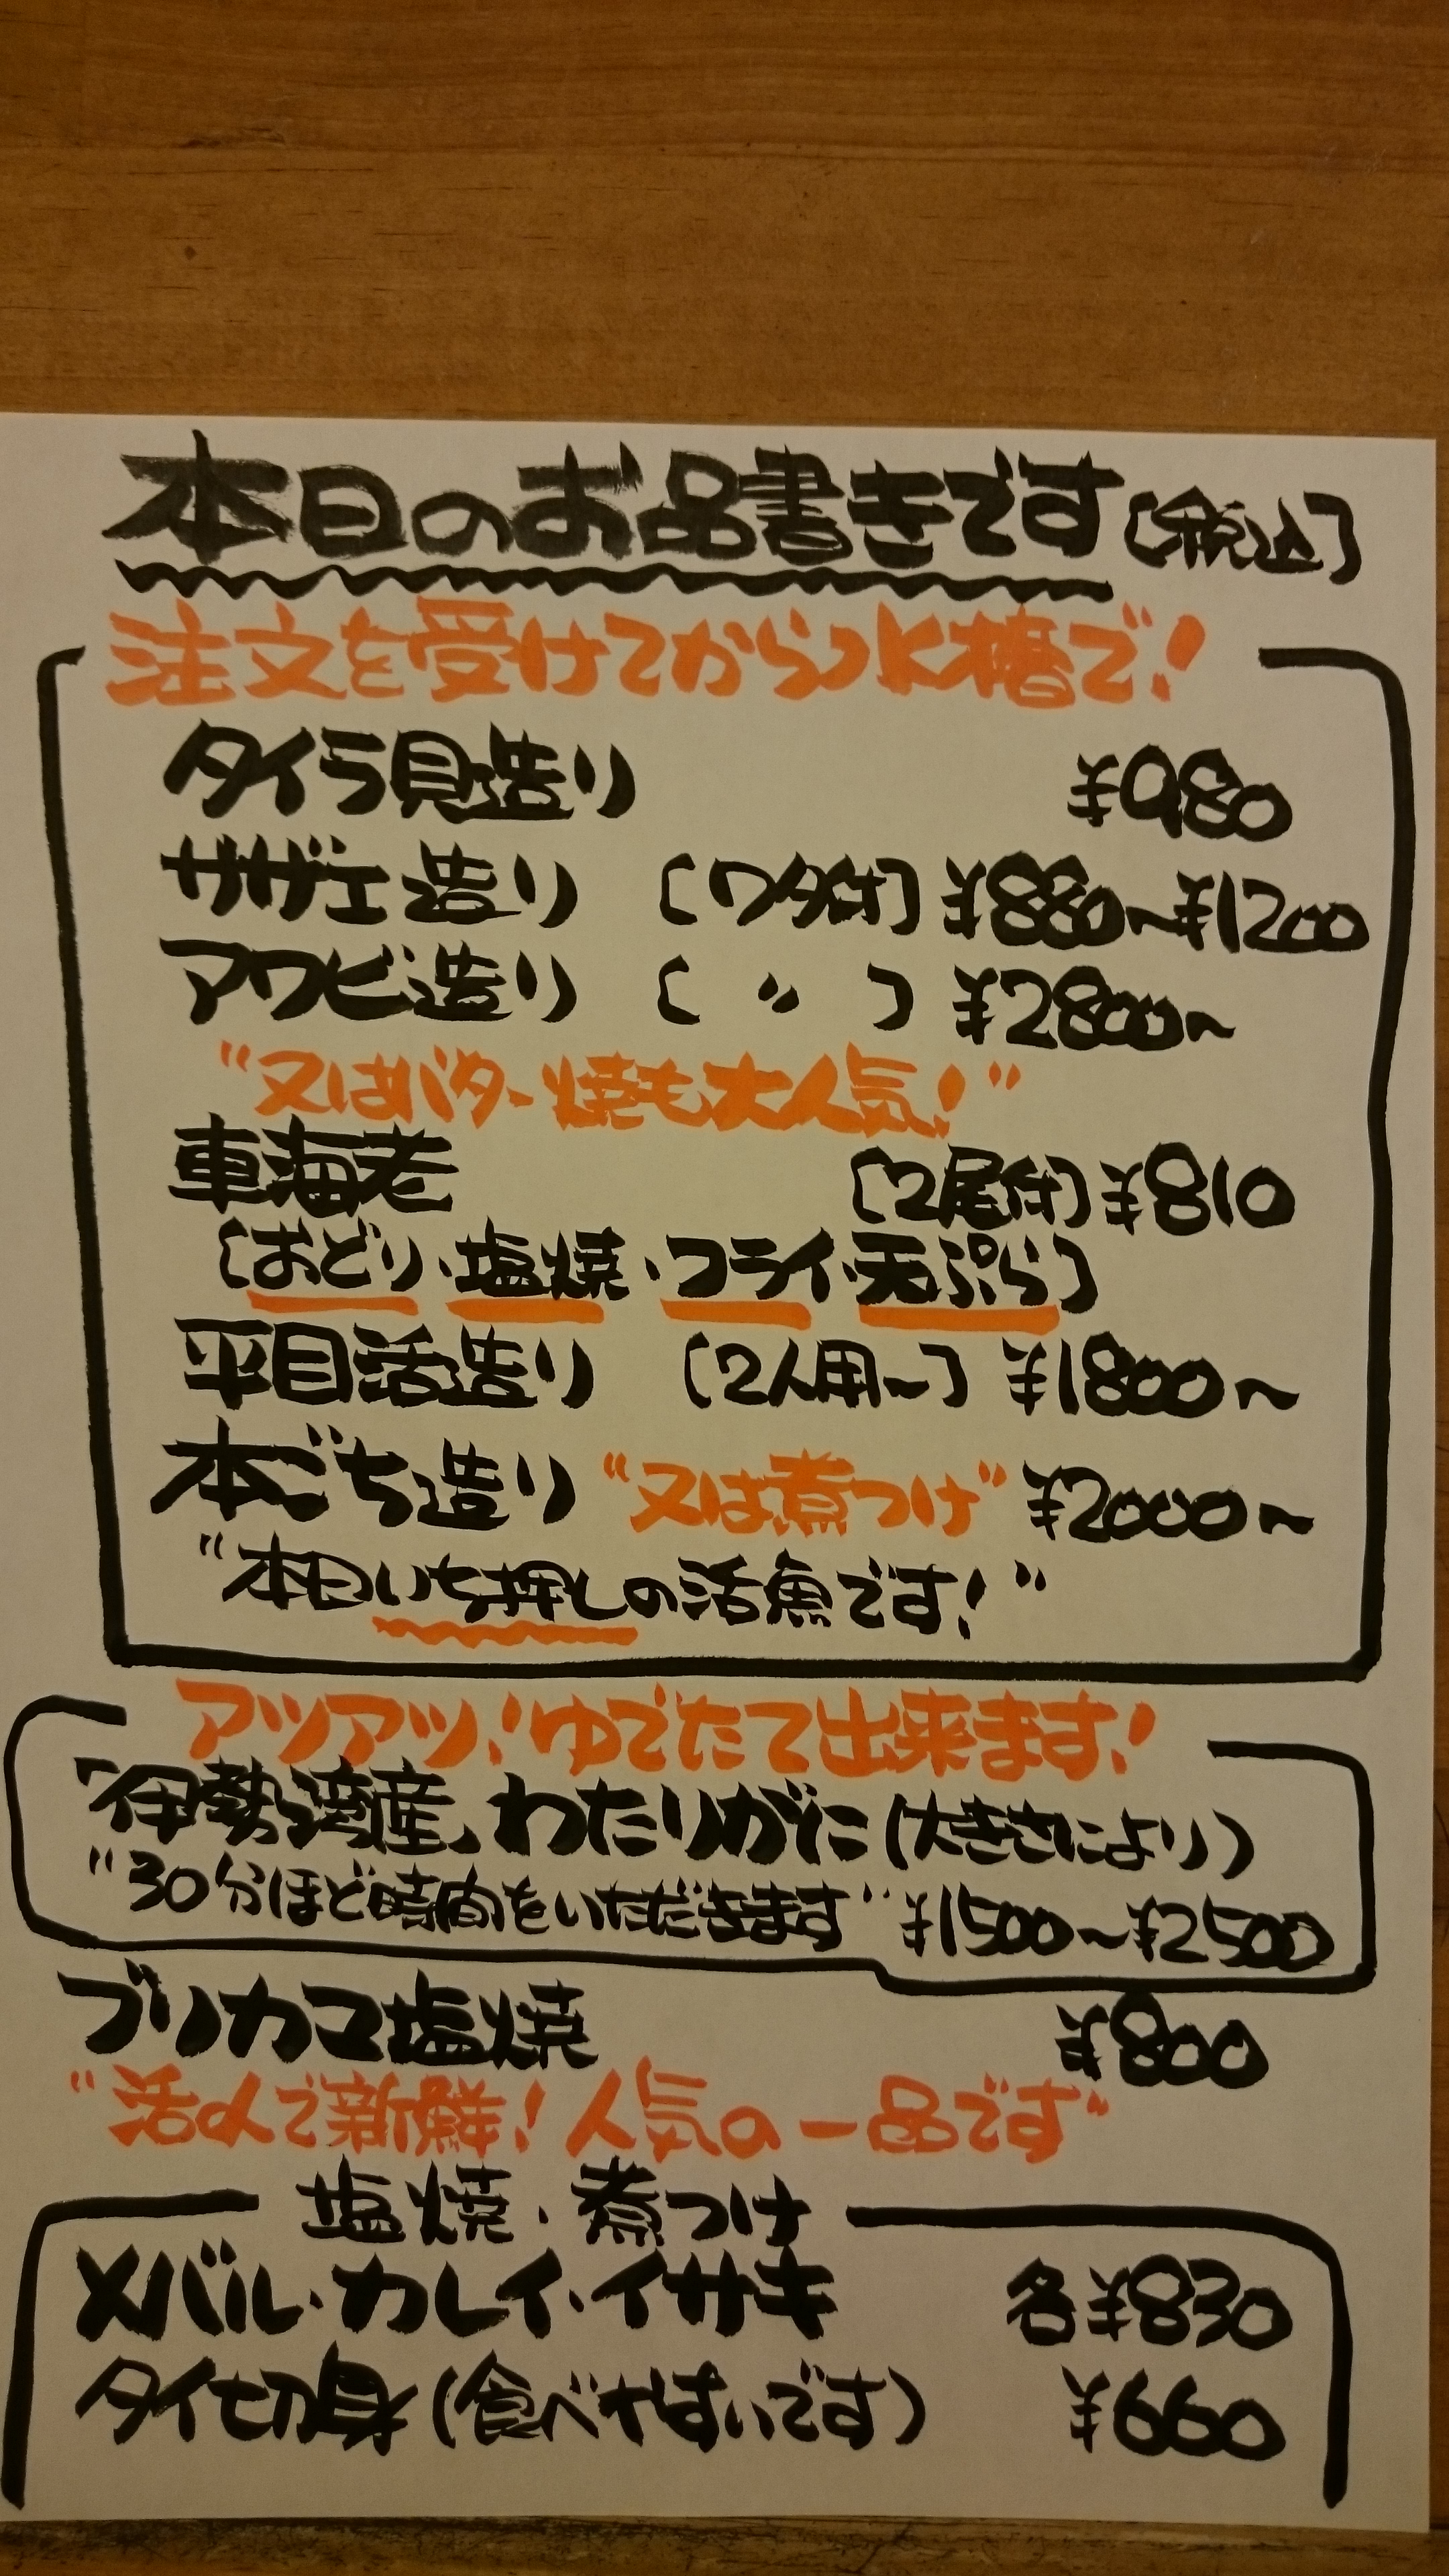 本日のお品書きです〔税込〕
注文を受けてから水槽で!
タイラ貝造り ¥980
サザエ造り 〔ワタ付〕 ¥880~¥1200
アワビ造り 〔 〃 〕 ¥2800~
"又はバター焼も大人気!"
車海老 〔2尾付〕 ¥810
〔おどり・塩焼・フライ・天ぷら〕
平目活造り 〔2人用~〕 ¥1800~
本ごち造り "又は煮つけ" ¥2000~
"本日いち押しの活魚です!"
アツアツ!ゆでたて出来ます!
「伊勢湾産」わたりがに(大きさにより)
"30分ほど時間をいただきます" ¥1500~¥2500
ブリカマ塩焼 ¥800
"活〆で新鮮!人気の一品です"
塩焼・煮つけ
メバル・カレイ・イサキ 各¥830
タイ切身(食べやすいです) ¥660